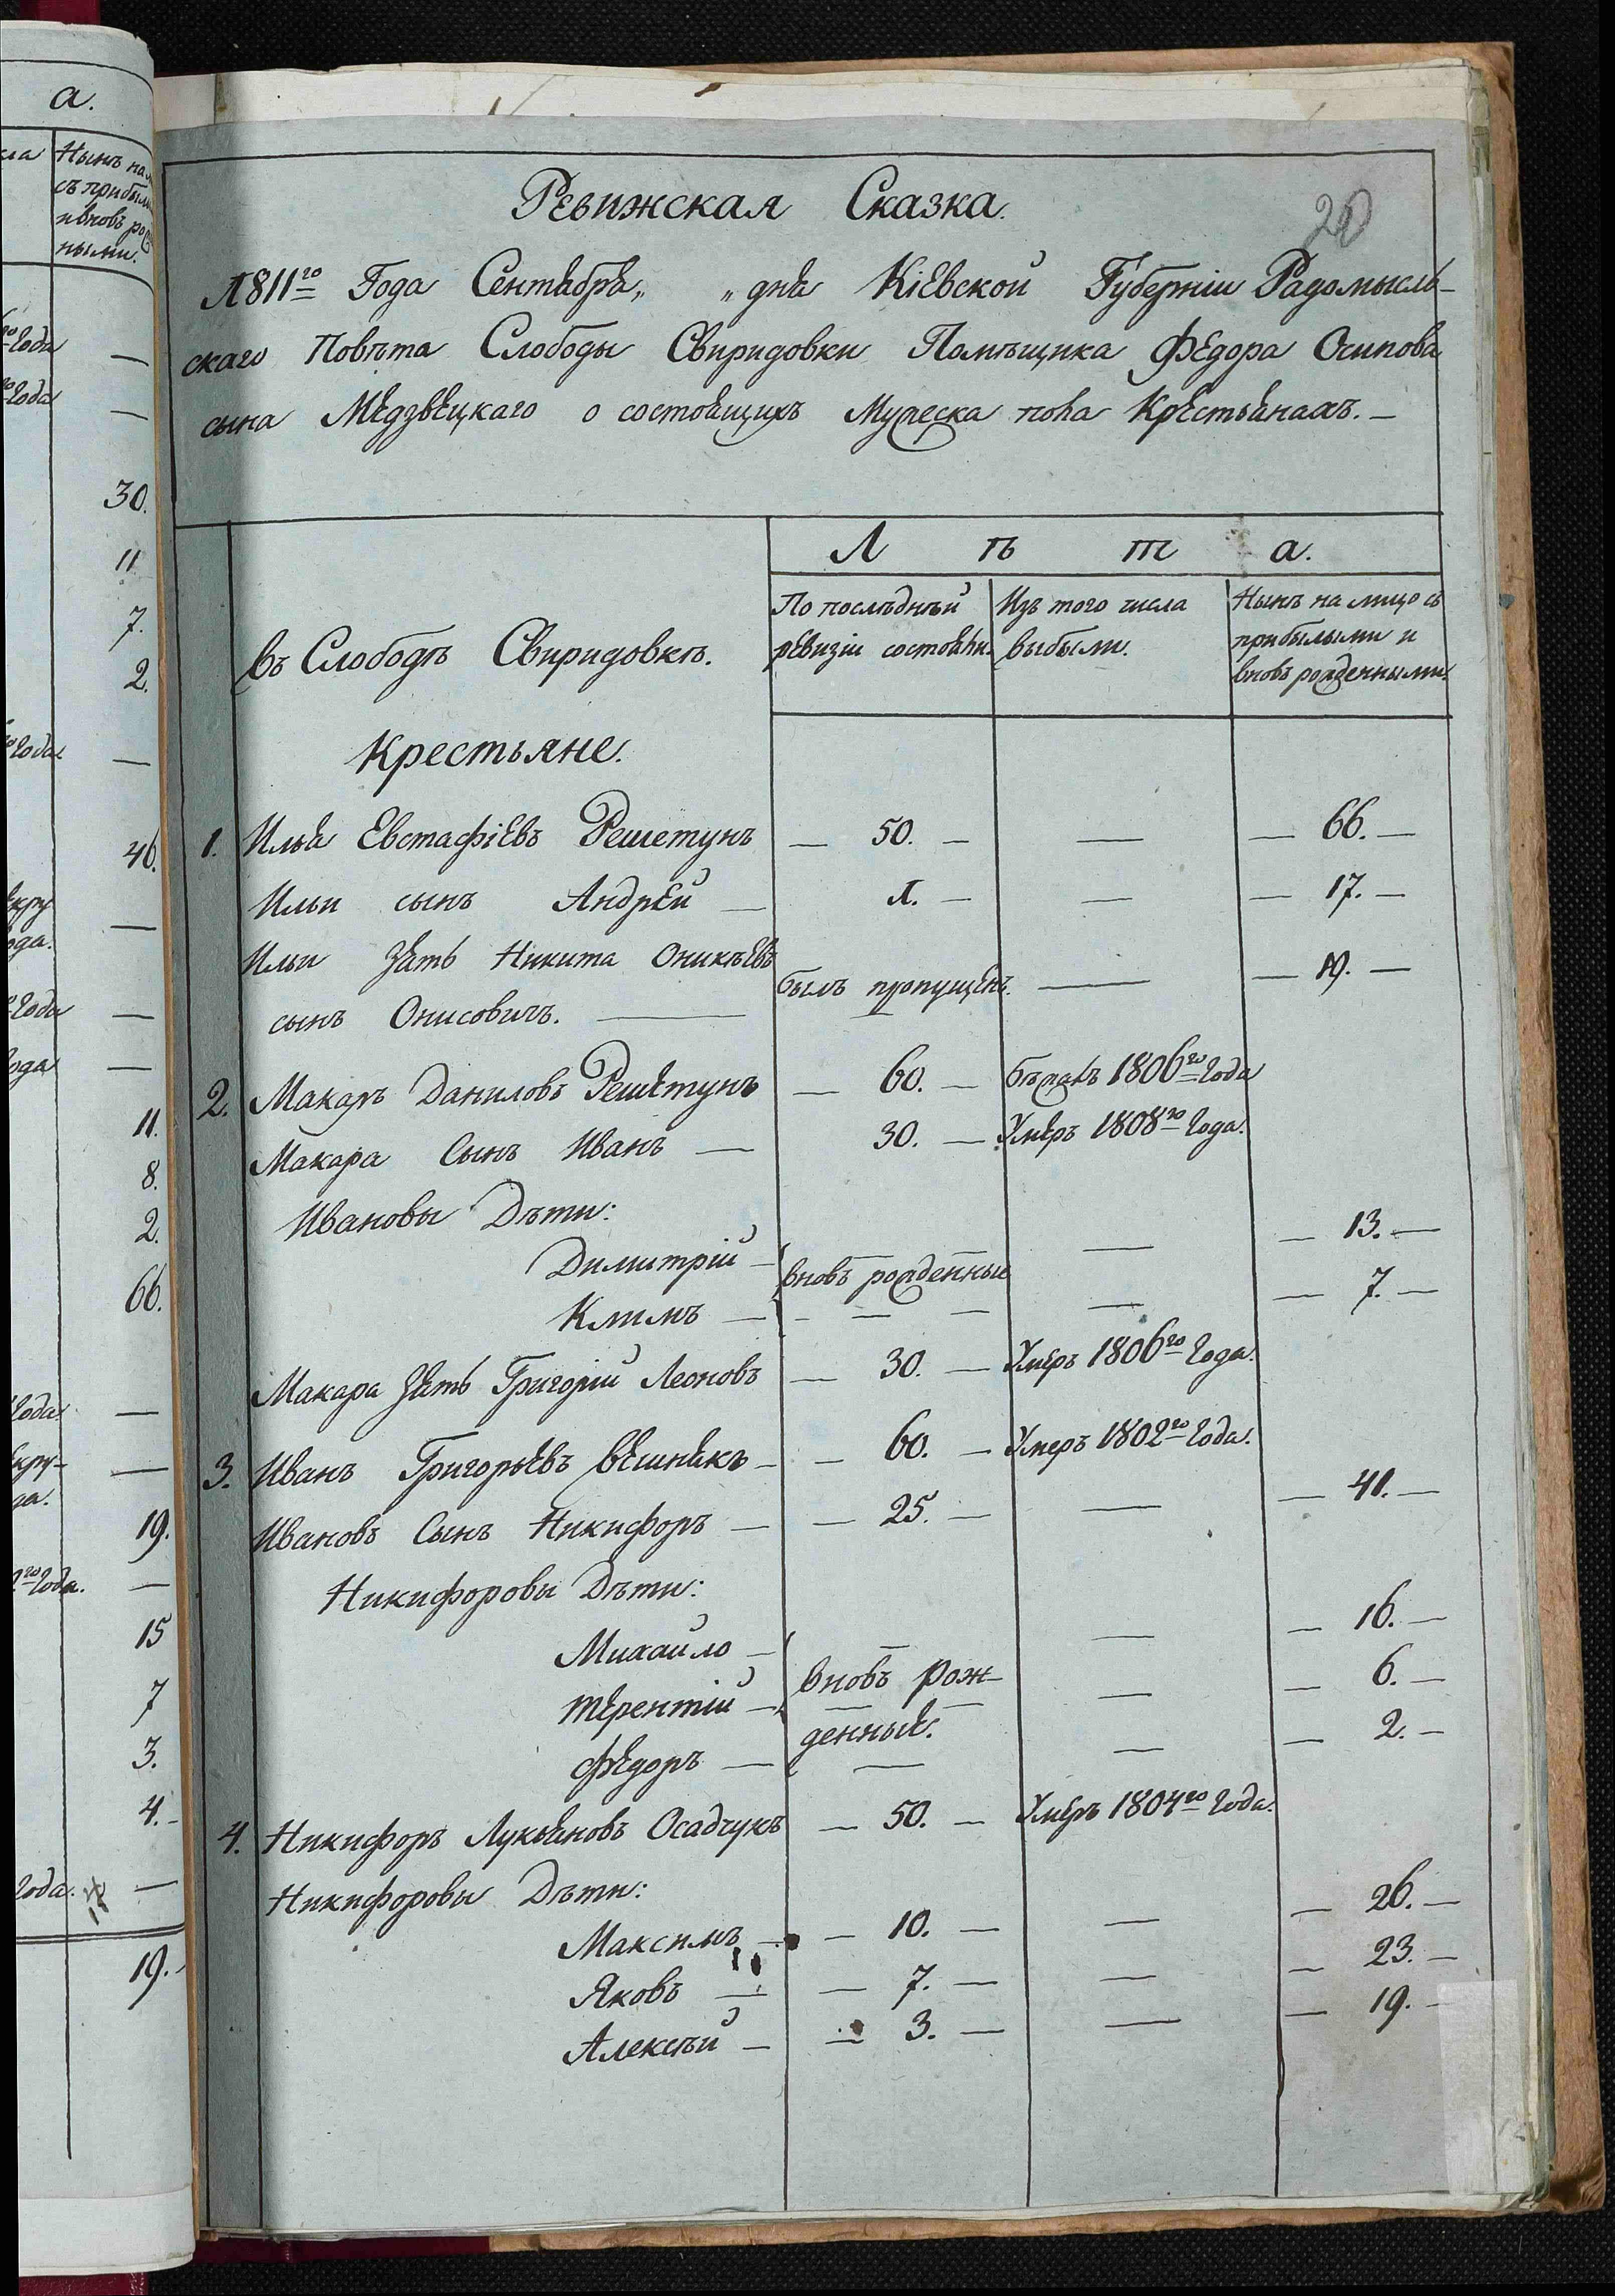 а.
Нынѣ на
съ прибылы
и вновь ро
ными.
года
года
30.
11
7.
2.
года
46.
года
года
11.
8.
2.
66.
года
19.
года.
15
7
3.
4.
года.
19.
20
Ревижская Сказка.
1811го Года Сентября „ „ дня Кіевской Губерніи Радомысль-
скаго Повѣта Слободы Свиридовки Помѣщика Федора Осипова
сына Медзвецкаго о состоящихъ Мужеска пола Крестьянахъ.
Л ѣ т а.
въ Слободѣ Свиридовкѣ.
По послѣднѣй ревизіи состояли.
Изъ того числа выбыли.
Нынѣ на лицо съ прибылыми и вновь рожденными.
Крестьяне.
1. Илья Евстафіевъ Решетунъ — 50. — — — 66. —
Ильи сынъ Андрей — 1. — — — 17. —
Ильи Зять Никита Оникѣевъ
сынъ Онисовичъ. — былъ пропущенъ. — — 19. —
2. Макаръ Даниловъ Решетунъ — 60. — бѣжалъ 1806го Года
Макара Сынъ Иванъ — 30. — Умеръ 1808го Года.
Ивановы Дѣти:
Димитрій — вновь рожденные — — 13. —
Климъ — — — 7. —
Макара Зять Григорій Леоновъ — 30. — Умеръ 1806го Года.
3. Иванъ Григорьевъ Вешнякъ — 60. — Умеръ 1802го Года.
Ивановъ Сынъ Никифоръ — 25. — — — 41. —
Никифоровы Дѣти:
Михайло — — — 16. —
Терентій — вновь рож- — — 6. —
Федоръ — денный. — — 2. —
4. Никифоръ Лукьяновъ Осадчукъ — 50. — Умеръ 1804го Года.
Никифоровы Дѣти:
Максимъ — 10. — — — 26. —
Яковъ — 7. — — — 23. —
Алексѣй — 3. — — — 19. —